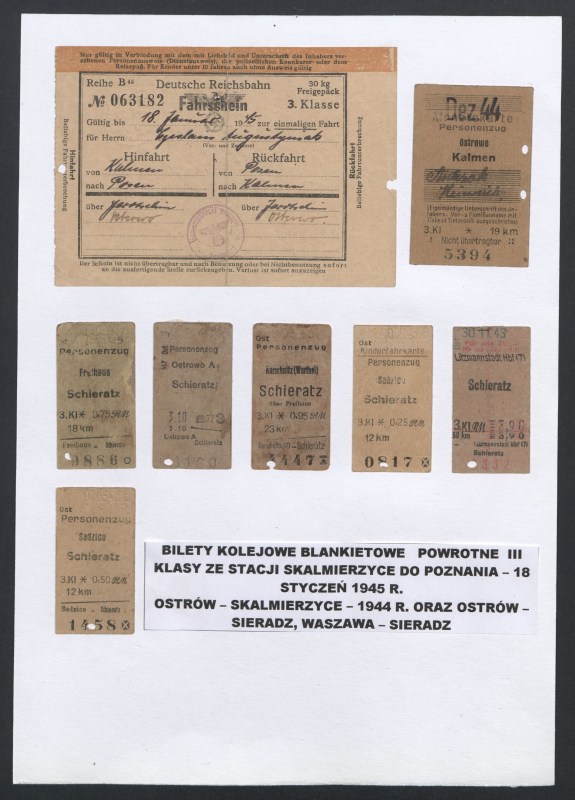 Nur gültig in Verbindung mit dem mit Lichtbild und Unterschrift des Inhabers ver-
sehenen Personenausweis (Dienstausweis), die polizeilichen Kennkarte oder dem
Reisepaß. Für Kinder unter 10 Jahren auch ohne Ausweis gültig
Reihe B
Deutsche Reichsbahn
30 kg
Freigepäck
№ 063182
Fahrschein
3. Klasse
Gültig bis 18. 1945 zur einmaligen Fahrt
für Herrn
(Vor- und Zuname)
Hinfahrt
Beliebige Fahrtunterbrechung
Hinfahrt
von Kalmen
nach Posen
über Jarotschin
Ostrowo
Rückfahrt
von Posen
nach Kalmen
über Jarotschin
Ostrowo
Rückfahrt
Beliebige Fahrtunterbrechung
Der Schein ist nicht übertragbar und nach Benutzung oder bei Nichtbenutzung sofort
an die ausfertigende Stelle zurückzugeben. Verlust ist sofort anzuzeigen
Dez 44
Personenzug
Ostrowo
Kalmen
Heinrich
3. Kl * 19 km
Nicht übertragbar
5394
Ost
Personenzug
Freihaus
Schieratz
3. Kl * 0.75
18 km
Freihaus - Schieratz
0886
Personenzug
Ostrowo
Schieratz
3.10
Schieratz
Ost
Personenzug
Schieratz
über Freihaus
3. Kl * 0.95
23 km
Schieratz
4447
Ost
Kinderfahrkarte
Personenzug
Schieratz
3. Kl * 0.25
12 km
0817
30.11.43
Litzmannstadt Hbf (7)
Schieratz
3. Kl
3,90
Litzmannstadt Hbf (7)
Schieratz
Ost
Personenzug
Schieratz
3. Kl * 0.50
12 km
Schieratz
1458
BILETY KOLEJOWE BLANKIETOWE POWROTNE III
KLASY ZE STACJI SKALMIERZYCE DO POZNANIA – 18
STYCZEŃ 1945 R.
OSTRÓW – SKALMIERZYCE – 1944 R. ORAZ OSTRÓW –
SIERADZ, WASZAWA – SIERADZ